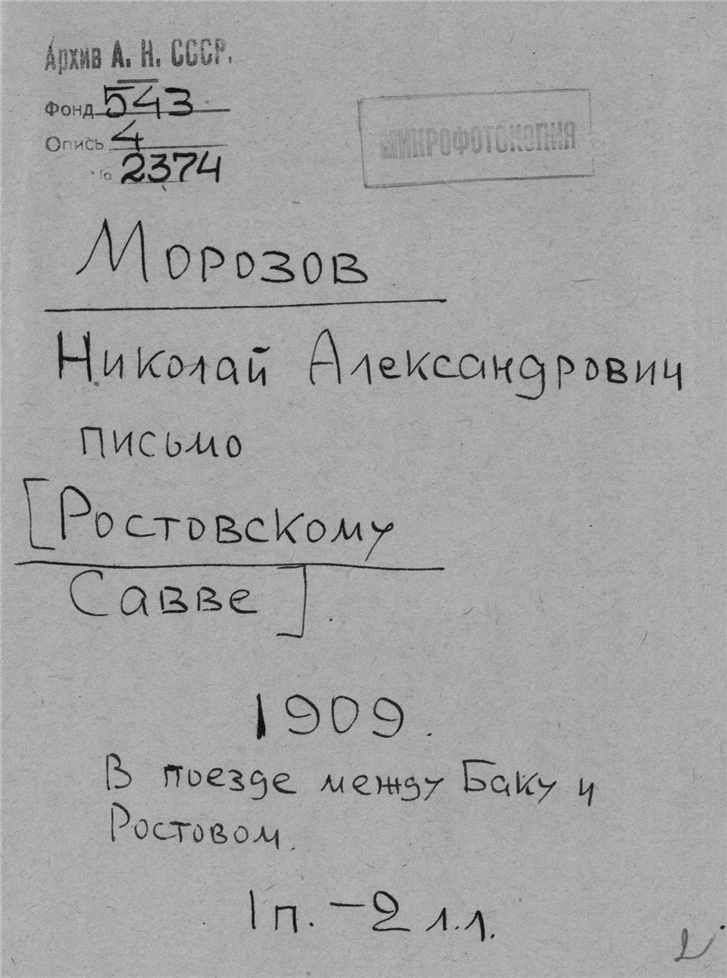 Архив А. Н. СССР.
Фонд 543
Опись 4
№ 2374
МИКРОФОТОКОПИЯ
Морозов
Николай Александрович
письмо
[Ростовскому
Савве].
1909.
В поезде между Баку и
Ростовом.
1 п. – 2 л.л.